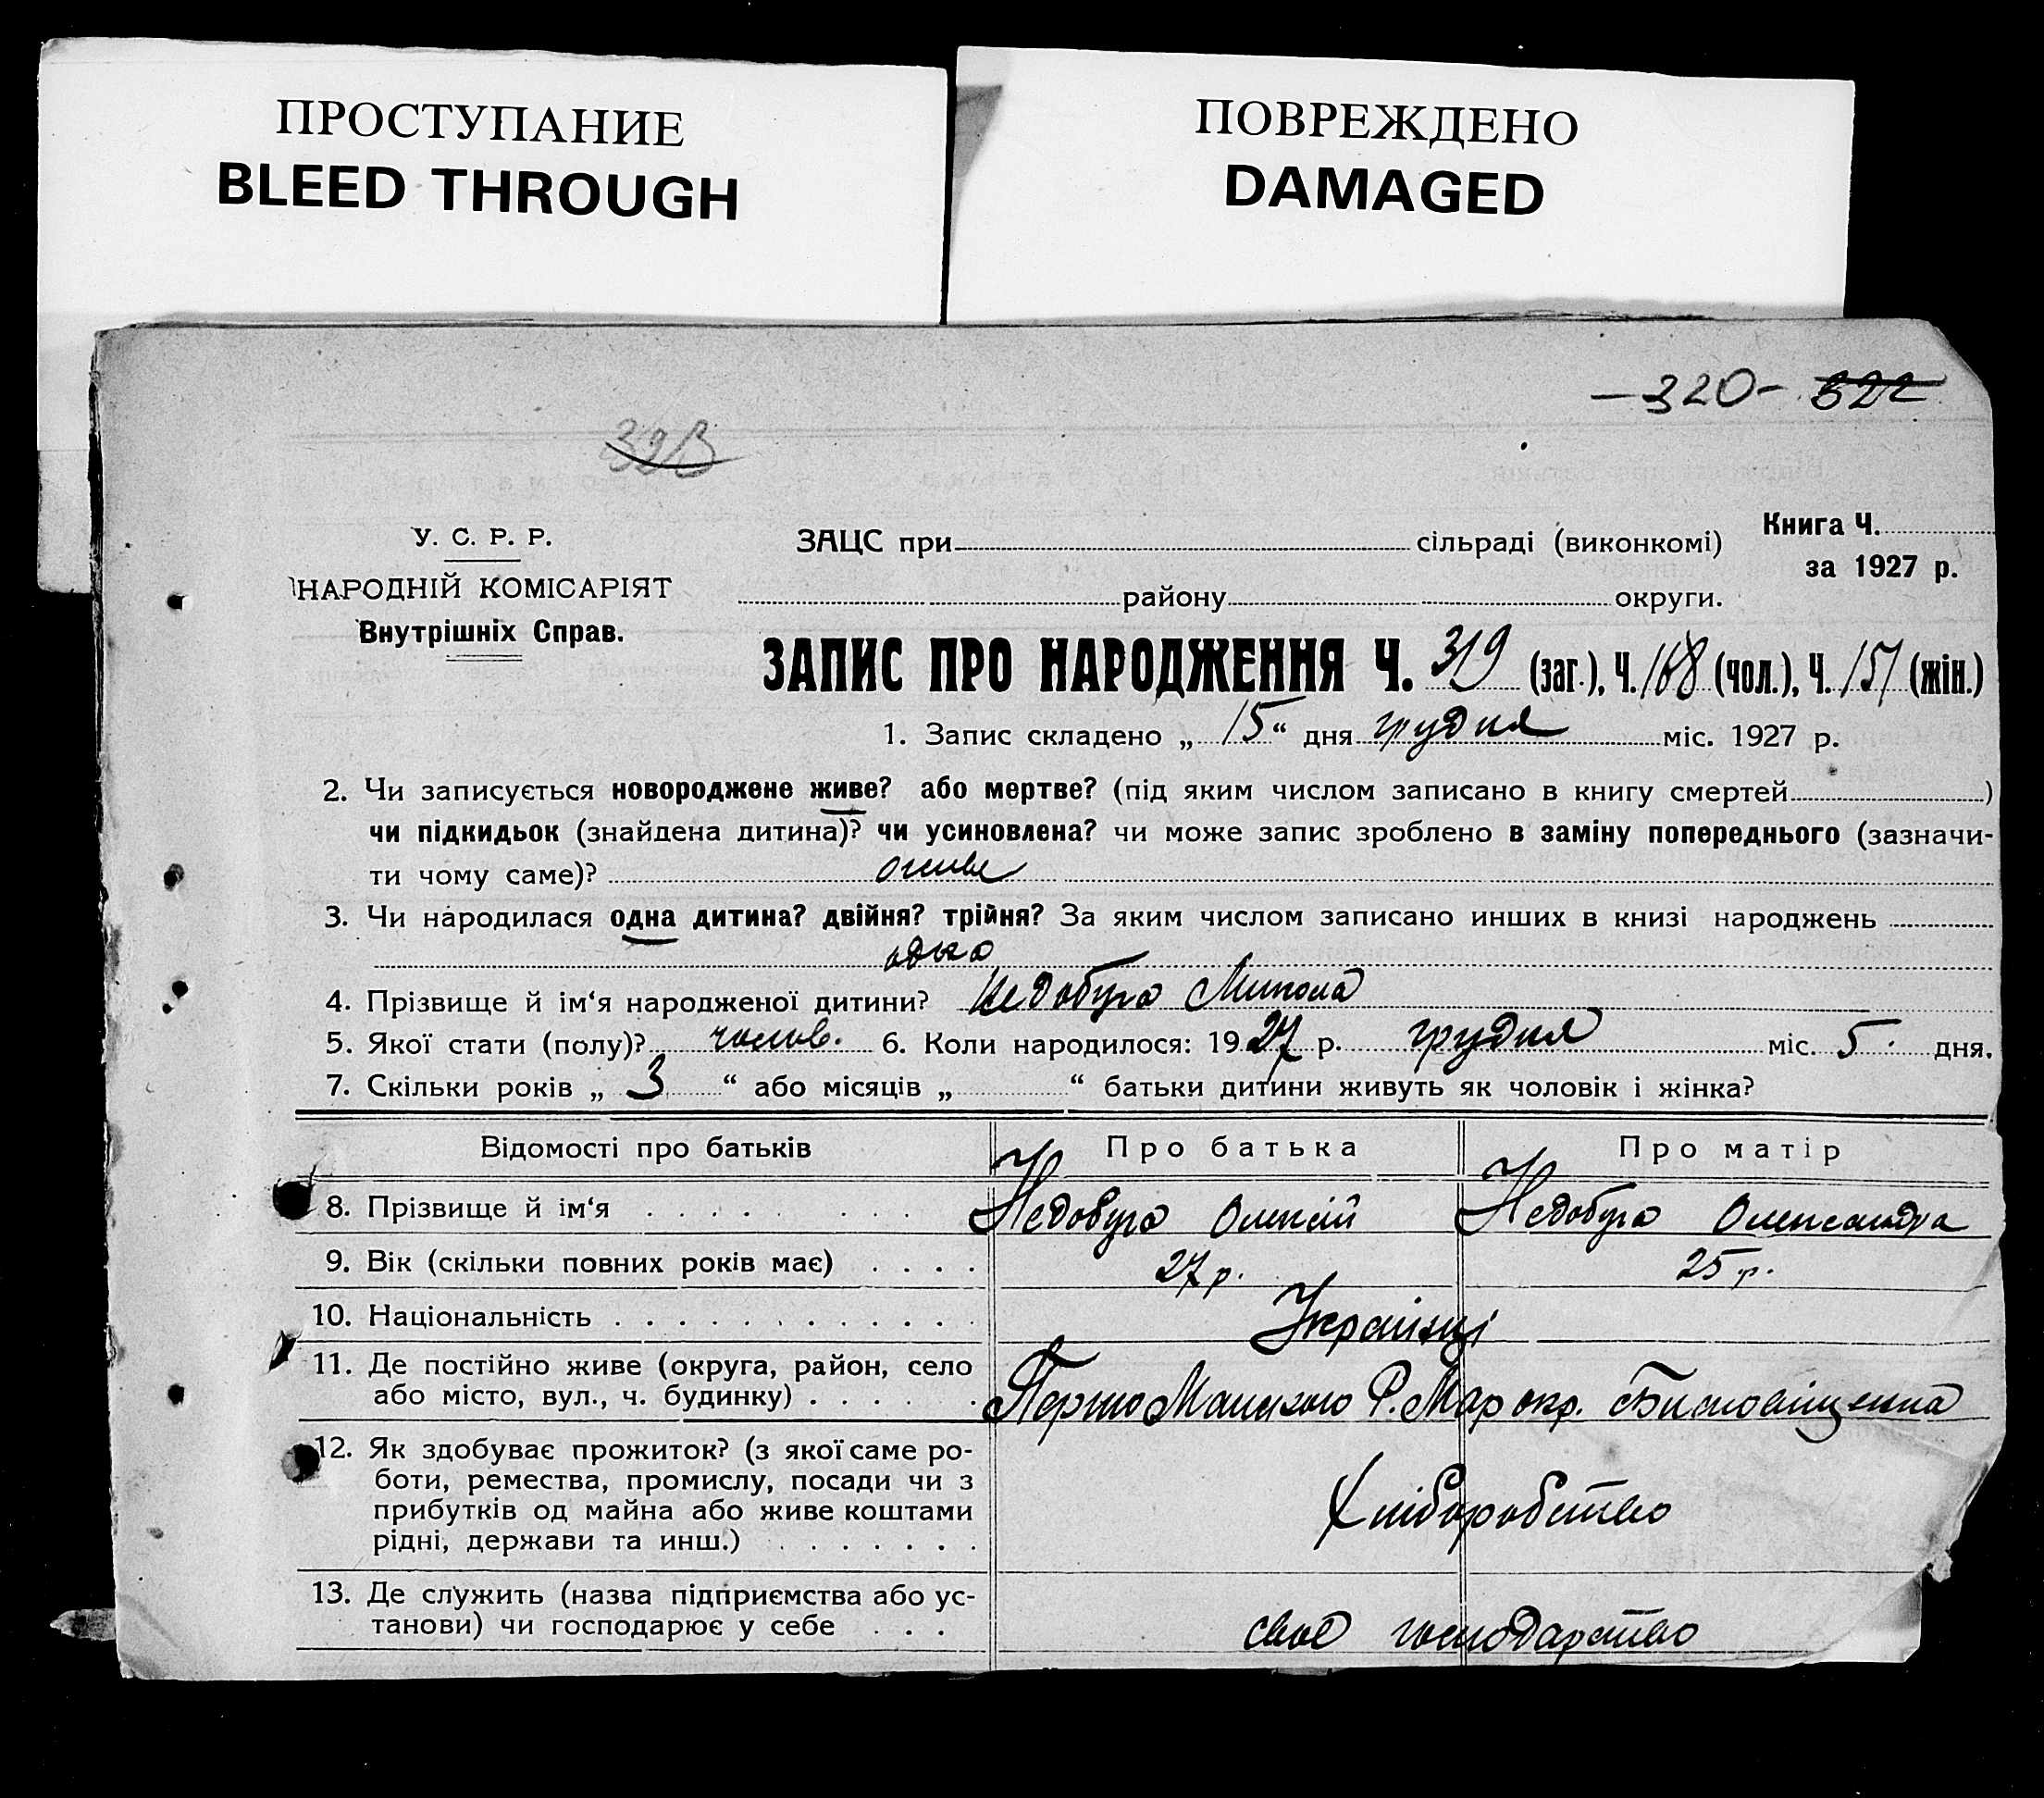 ПРОСТУПАНИЕ
BLEED THROUGH
ПОВРЕЖДЕНО
DAMAGED
—320— 322
393
У. С. Р. Р.
НАРОДНІЙ КОМІСАРІЯТ
Внутрішніх Справ.
ЗАЦС при сільраді (виконкомі)
району округи.
Книга Ч.
за 1927 р.
ЗАПИС ПРО НАРОДЖЕННЯ Ч. 319 (заг.), Ч. 168 (чол.), Ч. 151 (жін.)
1. Запис складено „ 15 “ дня грудня міс. 1927 р.
2. Чи записується новороджене живе? або мертве? (під яким числом записано в книгу смертей )
чи підкидьок (знайдена дитина)? чи усиновлена? чи може запис зроблено в заміну попереднього (зазначи-
ти чому саме)? живе
3. Чи народилася одна дитина? двійня? трійня? За яким числом записано инших в книзі народжень
одна
4. Прізвище й ім‘я народженої дитини? Недобуга Микола
5. Якої стати (полу)? чолов. 6. Коли народилося: 1927 р. грудня міс. 5 дня.
7. Скільки років „ 3 “ або місяців „ “ батьки дитини живуть як чоловік і жінка?
Відомості про батьків Про батька Про матір
8. Прізвище й ім‘я Недобуга Олексій Недобуга Олександра
9. Вік (скільки повних років має) 27 р. 25 р.
10. Національність Українці
11. Де постійно живе (округа, район, село
або місто, вул., ч. будинку) Р. Мар окр.
12. Як здобуває прожиток? (з якої саме ро-
боти, ремества, промислу, посади чи з
прибутків од майна або живе коштами
рідні, держави та инш.) Хліборобство
13. Де служить (назва підприємства або ус-
танови) чи господарює у себе своє господарство